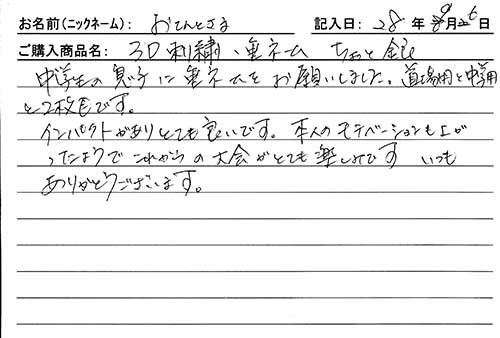 お名前(ニックネーム): おてんとさま 記入日: 28 年 9月 26日
ご購入商品名: 3D刺繍・垂ネーム ちゃと金
中学生の息子に垂ネームをお願いしました。道場用と中学用
と2枚目です。
インパクトがありとても良いです。本人のモチベーションも上が
ったようでこれからの大会がとても楽しみです いつも
ありがとうございます。